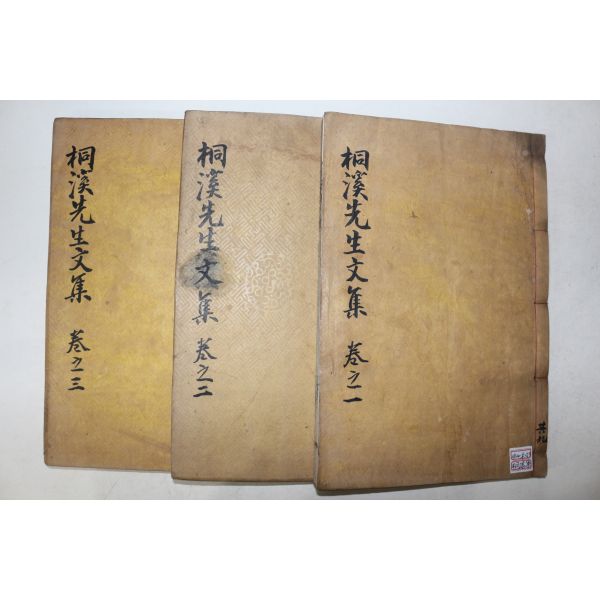 桐溪先生文集 卷之一
共九
桐溪先生文集 卷之二
桐溪先生文集 卷之三